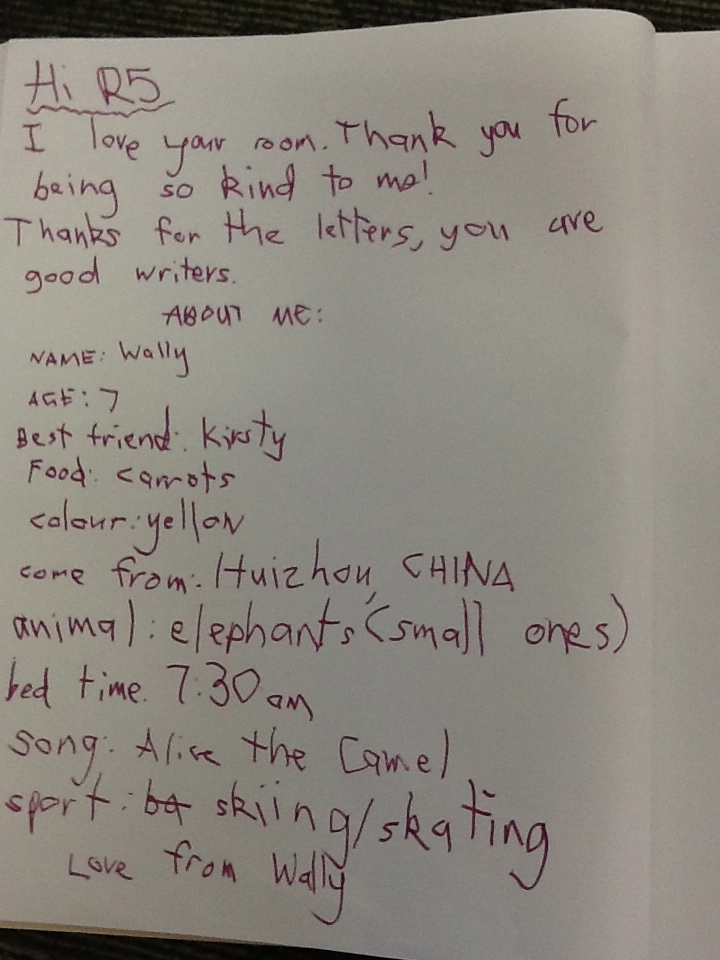 Hi R5
I love your room. Thank you for
being so kind to me!
Thanks for the letters, you are
good writers.
ABOUT ME:
NAME: Wally
AGE: 7
Best friend: Kirsty
Food: carrots
colour: yellow
come from: Huizhou, CHINA
animal: elephants (small ones)
bed time. 7:30 am
song: Alice the Camel
sport: ba skiing/skating
Love from Wally